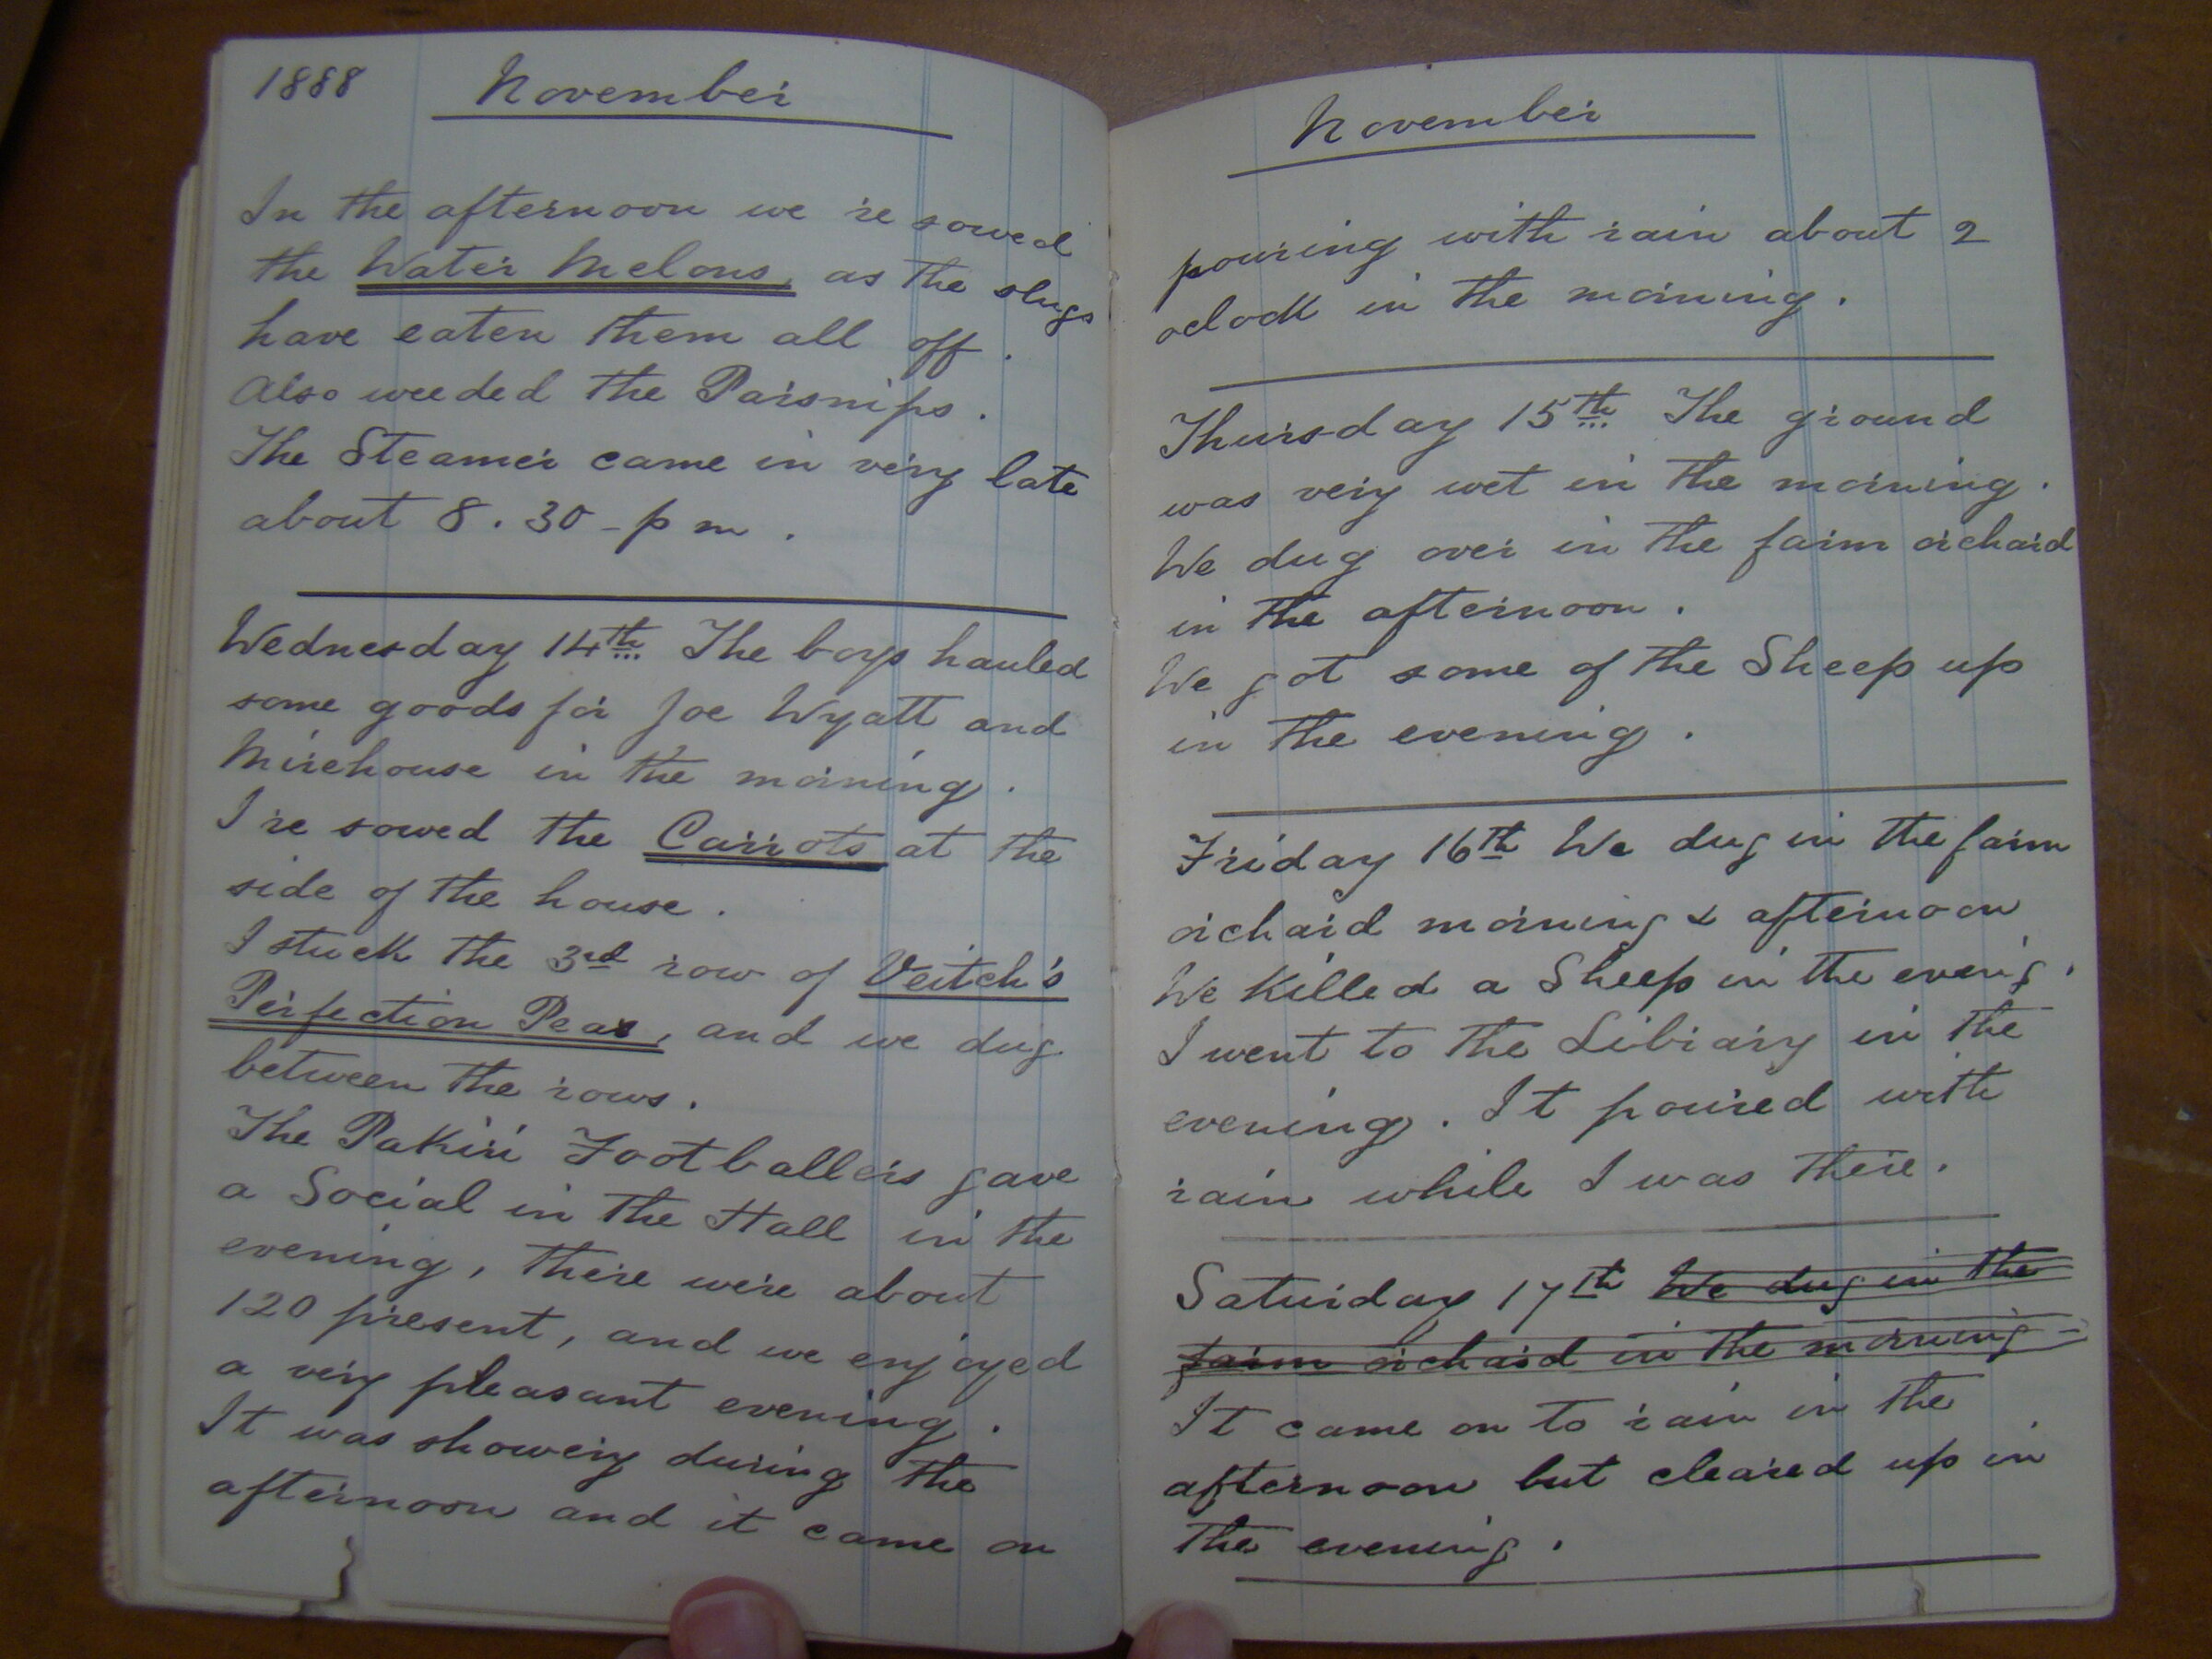 1888 November
In the afternoon we re sowed
the Water Melons, as the slugs
have eaten them all off.
Also weeded the Parsnips.
The Steamer came in very late
about 8.30 - p m.
Wednesday 14th The boys hauled
some goods for Joe Wyatt and
Mirehouse in the morning.
I re sowed the Carrots at the
side of the house.
I stuck the 3rd row of Veitch's
Perfection Peas, and we dug
between the rows.
The Pakiri Footballers gave
a Social in the Hall in the
evening, there were about
120 present, and we enjoyed
a very pleasant evening.
It was showery during the
afternoon and it came on
November
pouring with rain about 2
oclock in the morning.
Thursday 15th The ground
was very wet in the morning.
We dug over in the farm orchard
in the afternoon.
We got some of the Sheep up
in the evening.
Friday 16th We dug in the farm
orchard morning & afternoon
We killed a Sheep in the eveng.
I went to the Library in the
evening. It poured with
rain while I was there.
Saturday 17th We dug in the
farm orchard in the morning
It came on to rain in the
afternoon but cleared up in
the evening.